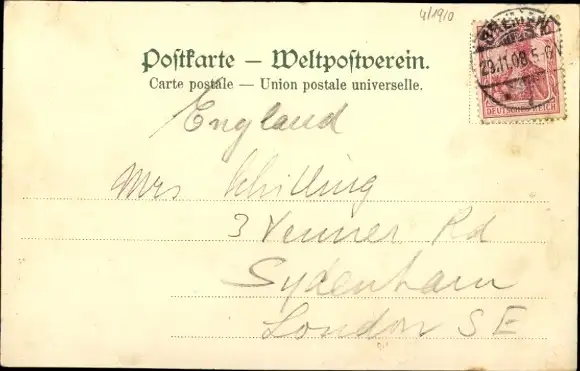 4/1910
BREMEN
23.11.08.5-6N
DEUTSCHES REICH
Postkarte – Weltpostverein.
Carte postale — Union postale universelle.
England
Mrs Schilling
3 Venner Rd
Sydenham
London SE